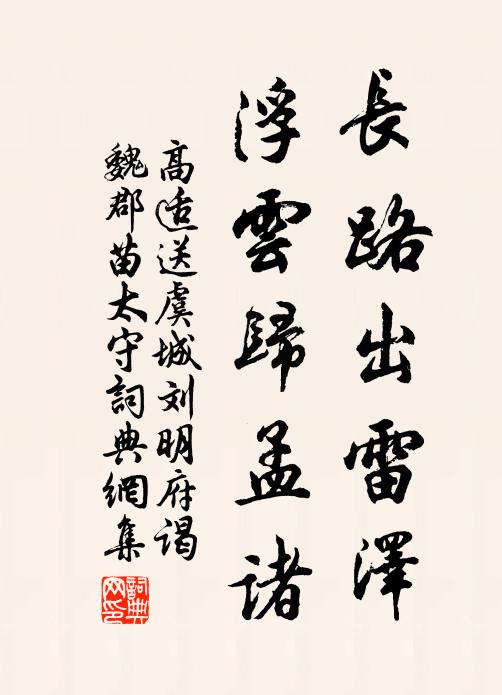 長路出雷澤
浮雲歸孟諸
高适送虞城刘明府谒
魏郡苗太守詞典網集
詞典網印